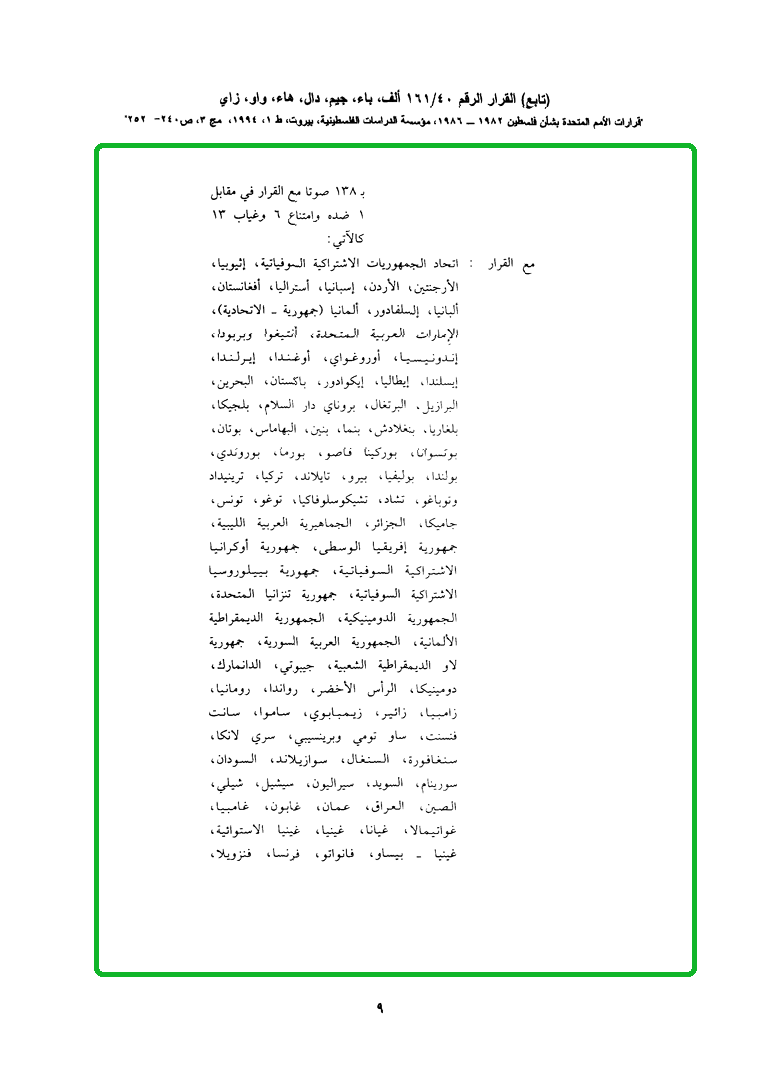 (تابع) القرار الرقم ١٦١/٤٠ ألف، باء، جيم، دال، هاء، واو، زاي
"قرارات الأمم المتحدة بشأن فلسطين ١٩٨٢ ــ ١٩٨٦، مؤسسة الدراسات الفلسطينية، بيروت، ط ١، ١٩٩٤، مج ٣، ص٢٤٠- ٢٥٢"
بـ ١٣٨ صوتا مع القرار في مقابل
١ ضده وامتناع ٦ وغياب ١٣
كالآتي:
مع القرار : اتحاد الجمهوريات الاشتراكية السوفياتية، إثيوبيا،
الأرجنتين، الأردن، إسبانيا، أستراليا، أفغانستان،
ألبانيا، إلسلفادور، ألمانيا (جمهورية ـ الاتحادية)،
الإمارات العربية المتحدة، أنتيغوا وبربودا،
إندونيسيا، أوروغواي، أوغندا، إيرلندا،
إيسلندا، إيطاليا، إيكوادور، باكستان، البحرين،
البرازيل، البرتغال، بروناي دار السلام، بلجيكا،
بلغاريا، بنغلادش، بنما، بنين، البهاماس، بوتان،
بوتسوانا، بوركينا فاصو، بورما، بوروندي،
بولندا، بوليفيا، بيرو، تايلاند، تركيا، ترينيداد
وتوباغو، تشاد، تشيكوسلوفاكيا، توغو، تونس،
جاميكا، الجزائر، الجماهيرية العربية الليبية،
جمهورية إفريقيا الوسطى، جمهورية أوكرانيا
الاشتراكية السوفياتية، جمهورية بييلوروسيا
الاشتراكية السوفياتية، جمهورية تنزانيا المتحدة،
الجمهورية الدومينيكية، الجمهورية الديمقراطية
الألمانية، الجمهورية العربية السورية، جمهورية
لاو الديمقراطية الشعبية، جيبوتي، الدانمارك،
دومينيكا، الرأس الأخضر، رواندا، رومانيا،
زامبيا، زائير، زيمبابوي، ساموا، سانت
فنسنت، ساو تومي وبرينسيبي، سري لانكا،
سنغافورة، السنغال، سوازيلاند، السودان،
سورينام، السويد، سيراليون، سيشيل، شيلي،
الصين، العراق، عمان، غابون، غامبيا،
غواتيمالا، غيانا، غينيا، غينيا الاستوائية،
غينيا ـ بيساو، فانواتو، فرنسا، فنزويلا،
٩